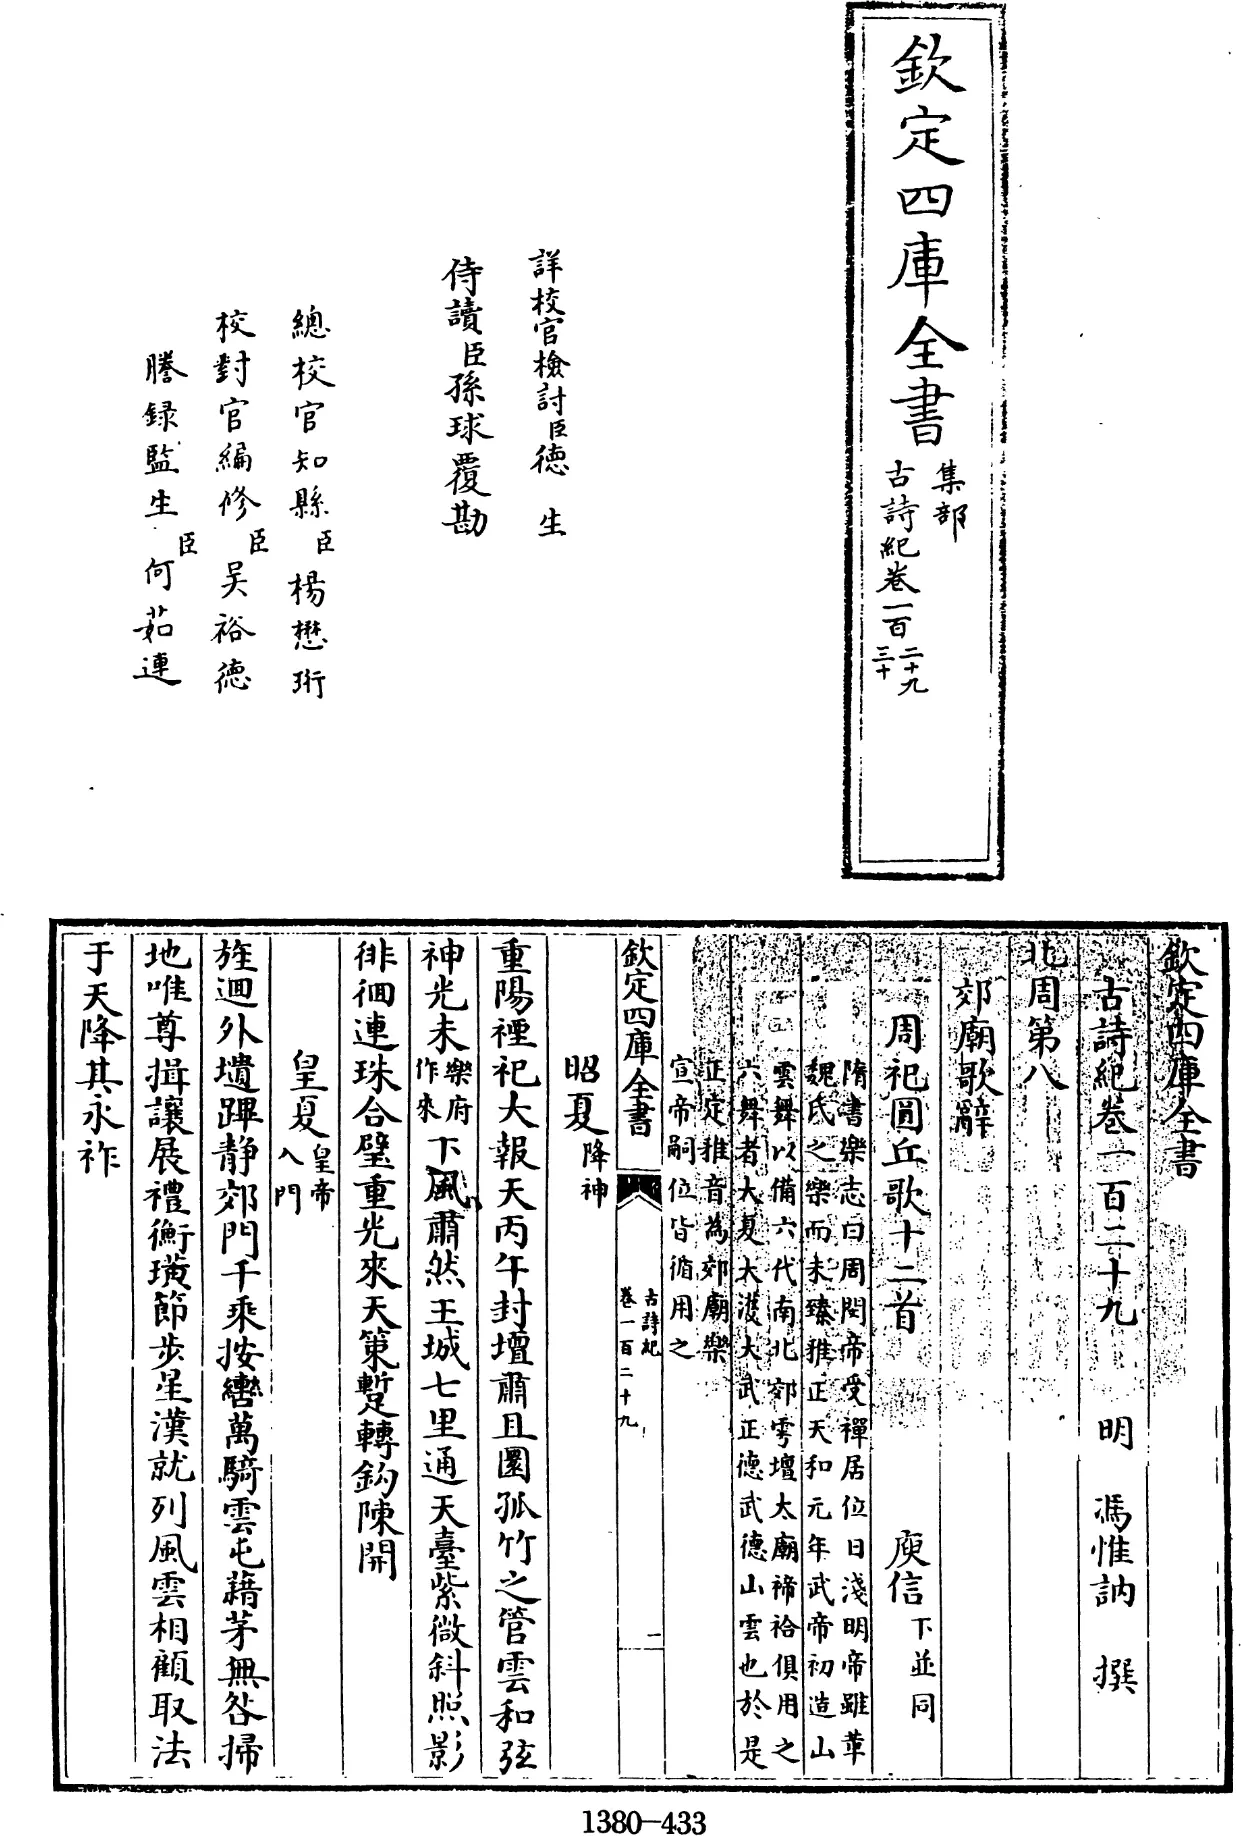 欽定四庫全書
集部
古詩紀卷一百
二十九
三十
詳校官檢討臣德生
侍讀臣孫球覆勘
總校官知縣臣楊懋珩
校對官編修臣吴裕德
謄録監生臣何茹連
欽定四庫全書
古詩紀卷一百二十九 明 馮惟訥 撰
北周第八
郊廟歌辭
周祀圓丘歌十二首 庾信下並同
隋書樂志曰周閔帝受禪居位日淺明帝雖革
魏氏之樂而未臻雅正天和元年武帝初造山
雲舞以備六代南北郊雩壇太廟禘祫俱用之
六舞者大夏大濩大武正德武德山雲也於是
正定雅音為郊廟樂
宣帝嗣位皆循用之
欽定四庫全書
古詩紀
卷一百二十九
一
昭夏降神
重陽禋祀大報天丙午封壇肅且圜孤竹之管雲和弦
神光未樂府作來下風肅然王城七里通天臺紫微斜照影
徘徊連珠合璧重光來天策蹔轉鈎陳開
皇夏皇帝入門
旌迴外壝蹕静郊門千乘按轡萬騎雲屯藉茅無咎掃
地唯尊揖讓展禮衡璜節步星漢就列風雲相顧取法
于天降其永祚
1380-433